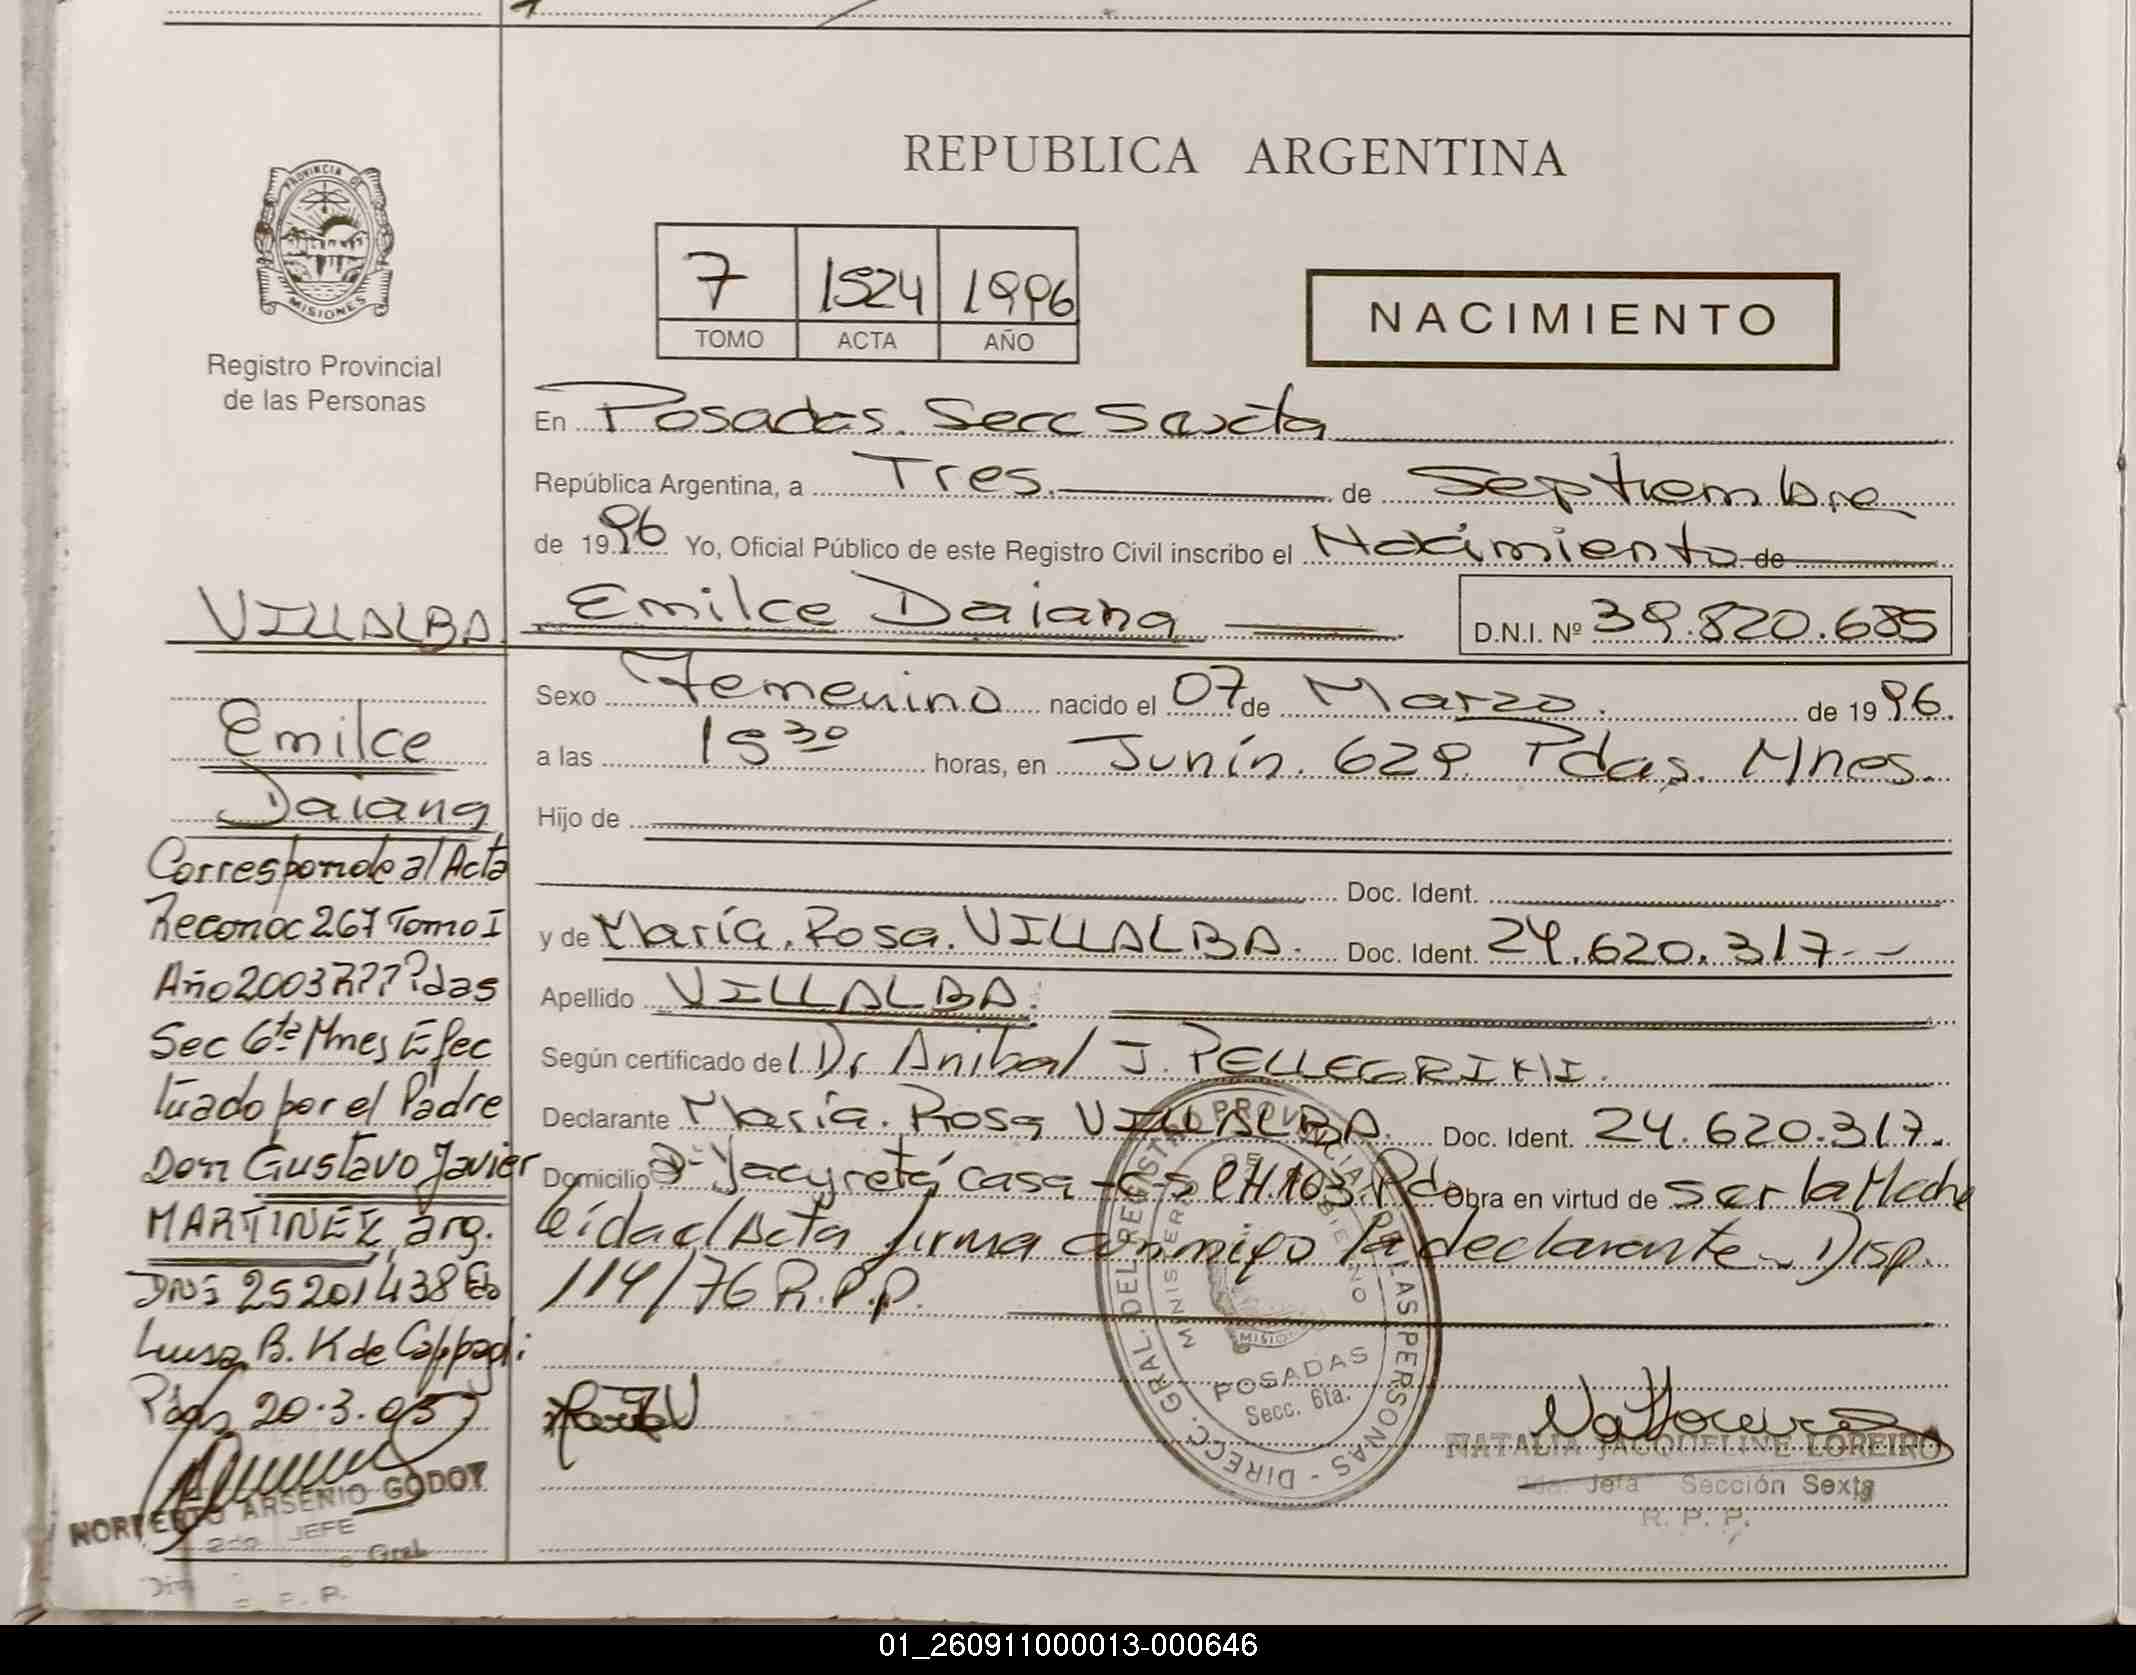 REPUBLICA ARGENTINA
PROVINCIA DE
MISIONES
Registro Provincial
de las Personas
7 1524 1996
TOMO ACTA AÑO
NACIMIENTO
En Posadas. Secc Sexta
República Argentina, a Tres. de Septiembre
de 1996 Yo, Oficial Público de este Registro Civil inscribo el Nacimiento de
VILLALBA Emilce Daiana D.N.I. Nº 39.820.685
Sexo Femenino nacido el 07 de Marzo. de 1996.
a las 15 30 horas, en Junín. 629. Pdas. Mnes.
Hijo de
Doc. Ident.
y de María. Rosa. VILLALBA. Doc. Ident. 24.620.317--
Apellido VILLALBA.
Según certificado del Dr Anibal J. PELLEGRINI.
Declarante María. Rosa VILLALBA. Doc. Ident. 24.620.317.
Domicilio Yacyretá casa Obra en virtud de ser la Madre
leída el Acta firma conmigo la declarante. Disp.
114/76 R.P.P.
Emilce
Daiana
Corresponde al Acta
Reconoc 267 Tomo I
Año 2003 Pdas
Sec 6ta Mnes Efec
tuado por el Padre
Don Gustavo Javier
MARTINEZ, arg.
DNI 25201438
Luisa B. K de
Pdas, 20.3.05
NORBERTO ARSENIO GODOY
2do JEFE
Gral
DIRECC. GRAL. DEL REGISTRO PROVINCIAL DE LAS PERSONAS
MINISTERIO DE GOBIERNO
MISIONES
POSADAS
Secc. 6ta.
NATALIA JACQUELINE LOREIRO
2da. Jefa Sección Sexta
R. P. P.
01_260911000013-000646